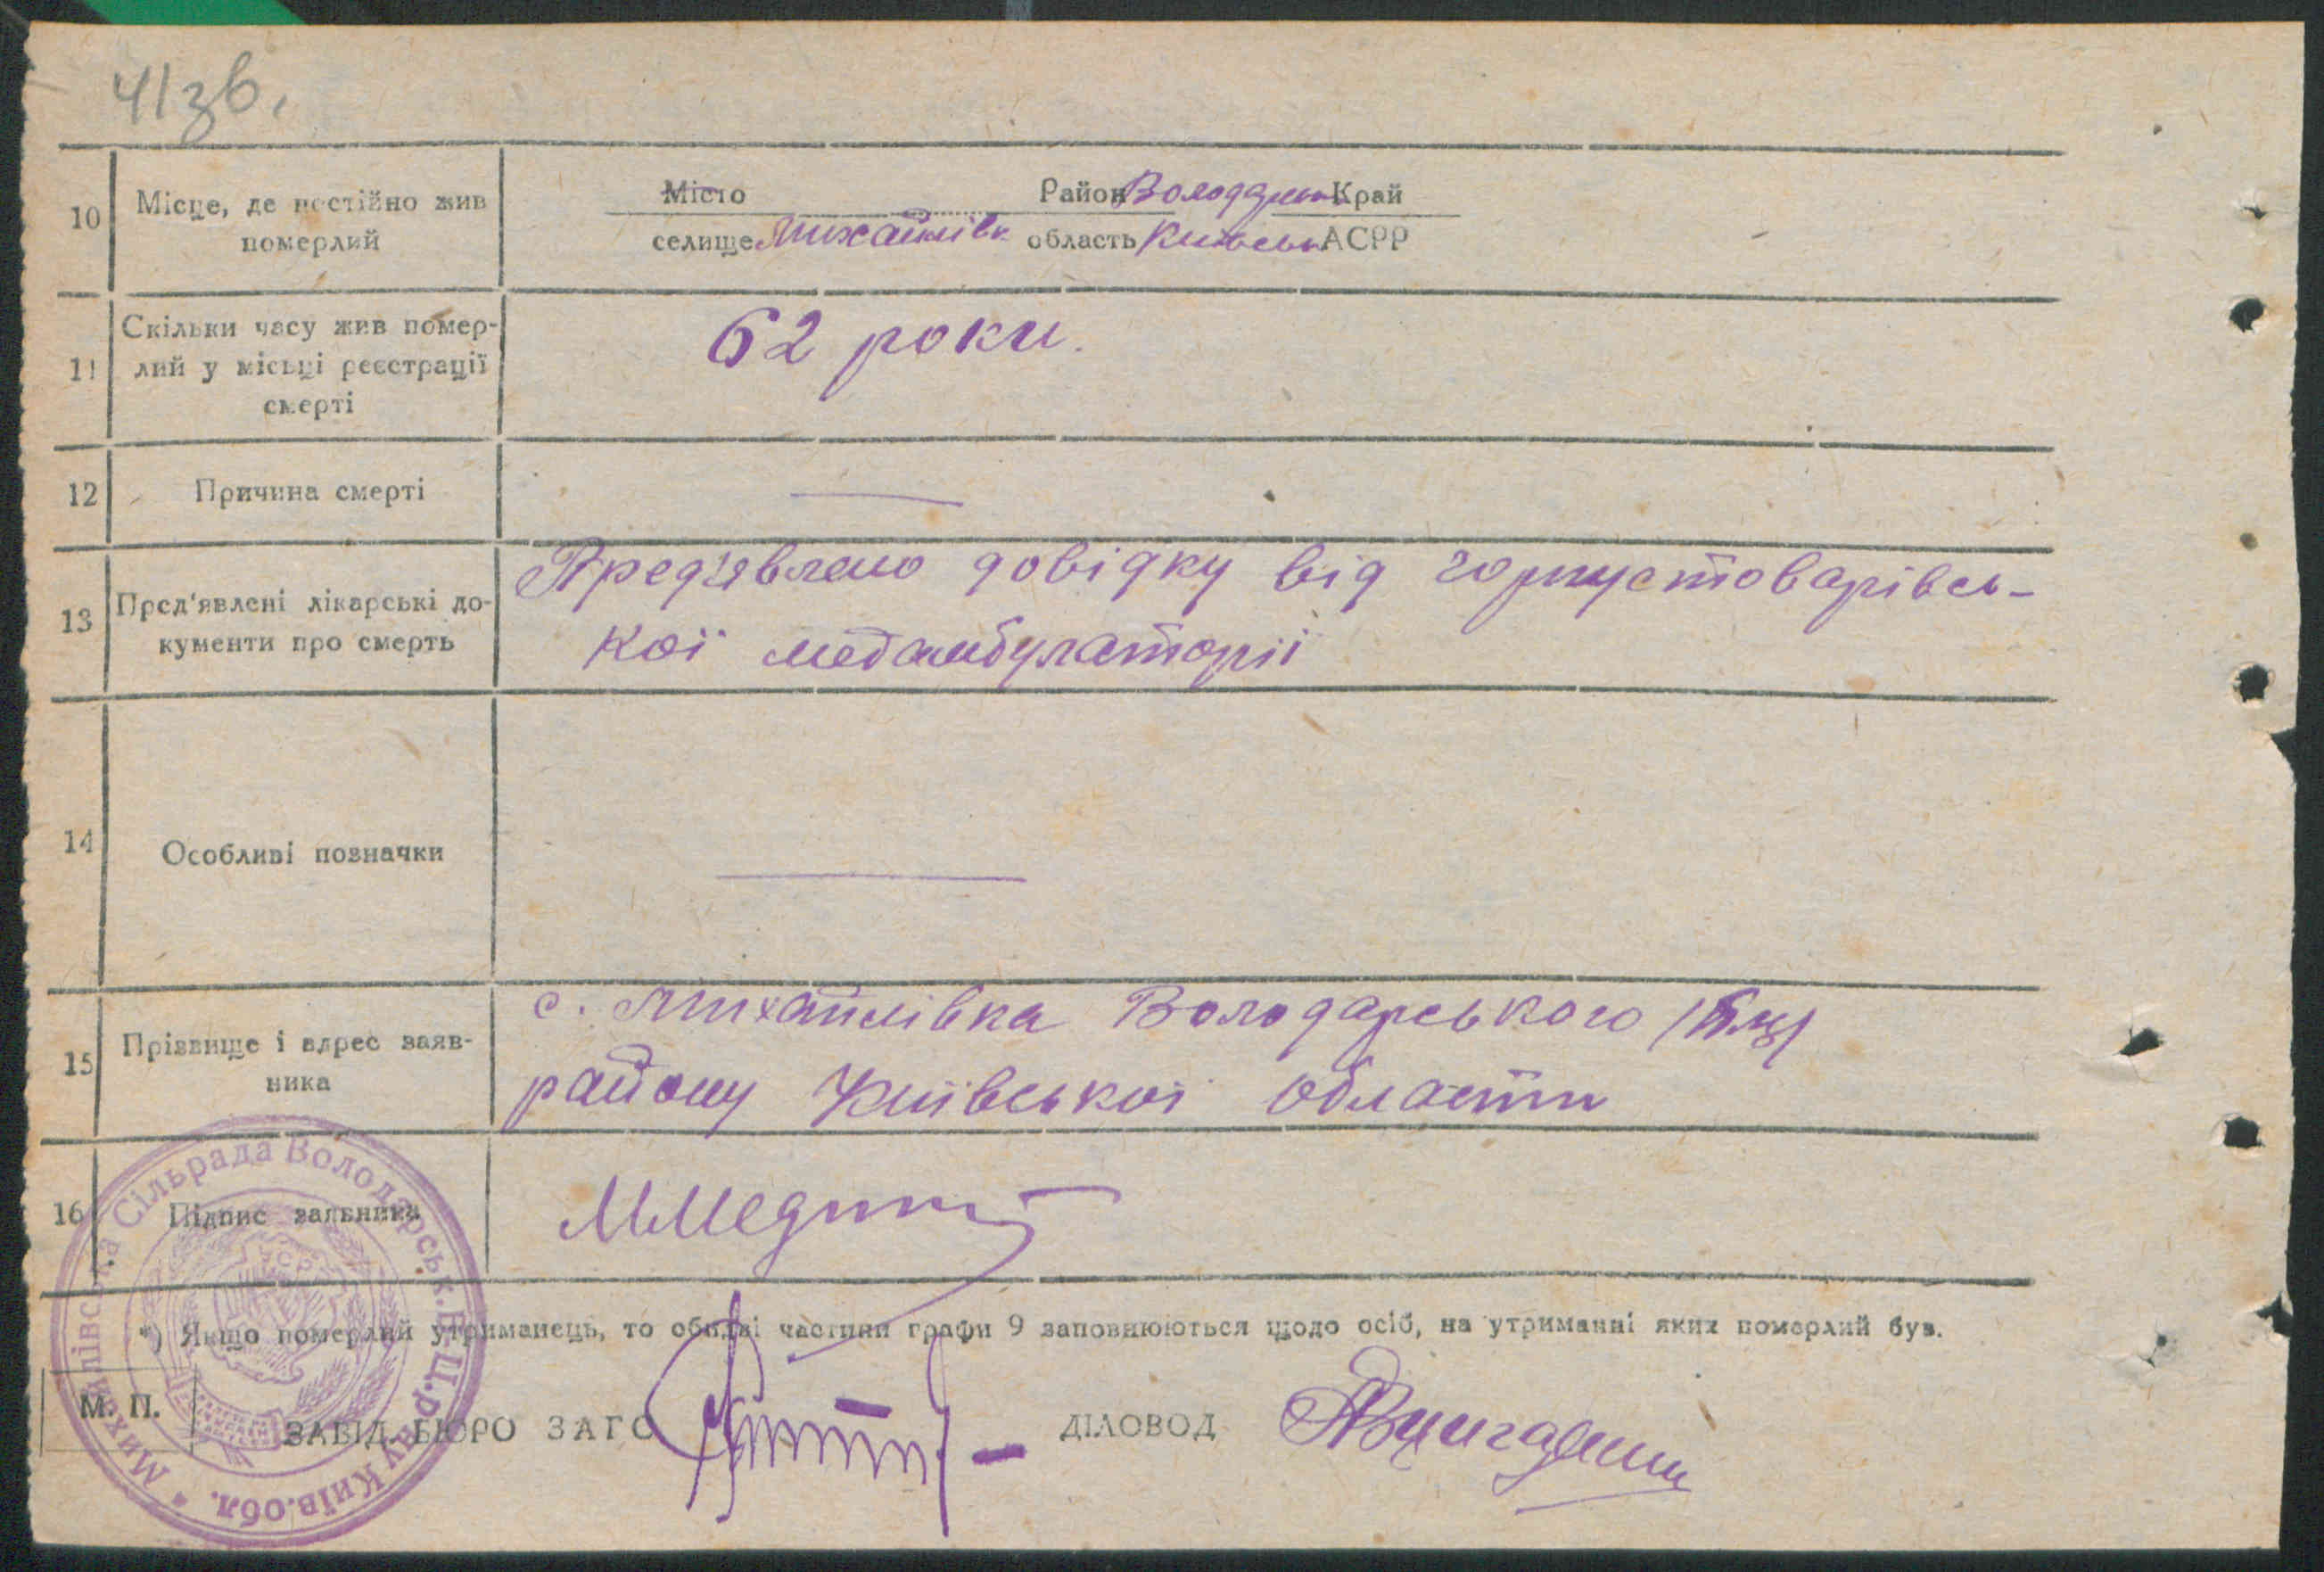 41зв.
10 Місце, де постійно жив померлий
Місто Район Володарськ Край
селище Михайлівк область Київськ АСРР
11 Скільки часу жив помер-
лий у місці реєстрації
смерті
62 роки.
12 Причина смерті —
13 Пред'явлені лікарські до-
кументи про смерть
Пред'явлено довідку від горпустоварівсь-
кої медамбулаторії
14 Особливі позначки —
15 Прізвище і адрес заяв-
ника
с. Михайлівка Володарського
району Київської області
16 Підпис заявника
*) Якщо померлий утриманець, то обидві частини графи 9 заповнюються щодо осіб, на утриманні яких померлий був.
М. П.
ЗАВІД. БЮРО ЗАГС
ДІЛОВОД
Михайлівська Сільрада Володарськ. Б-Ц. р-ну Київ. обл.
УСРР